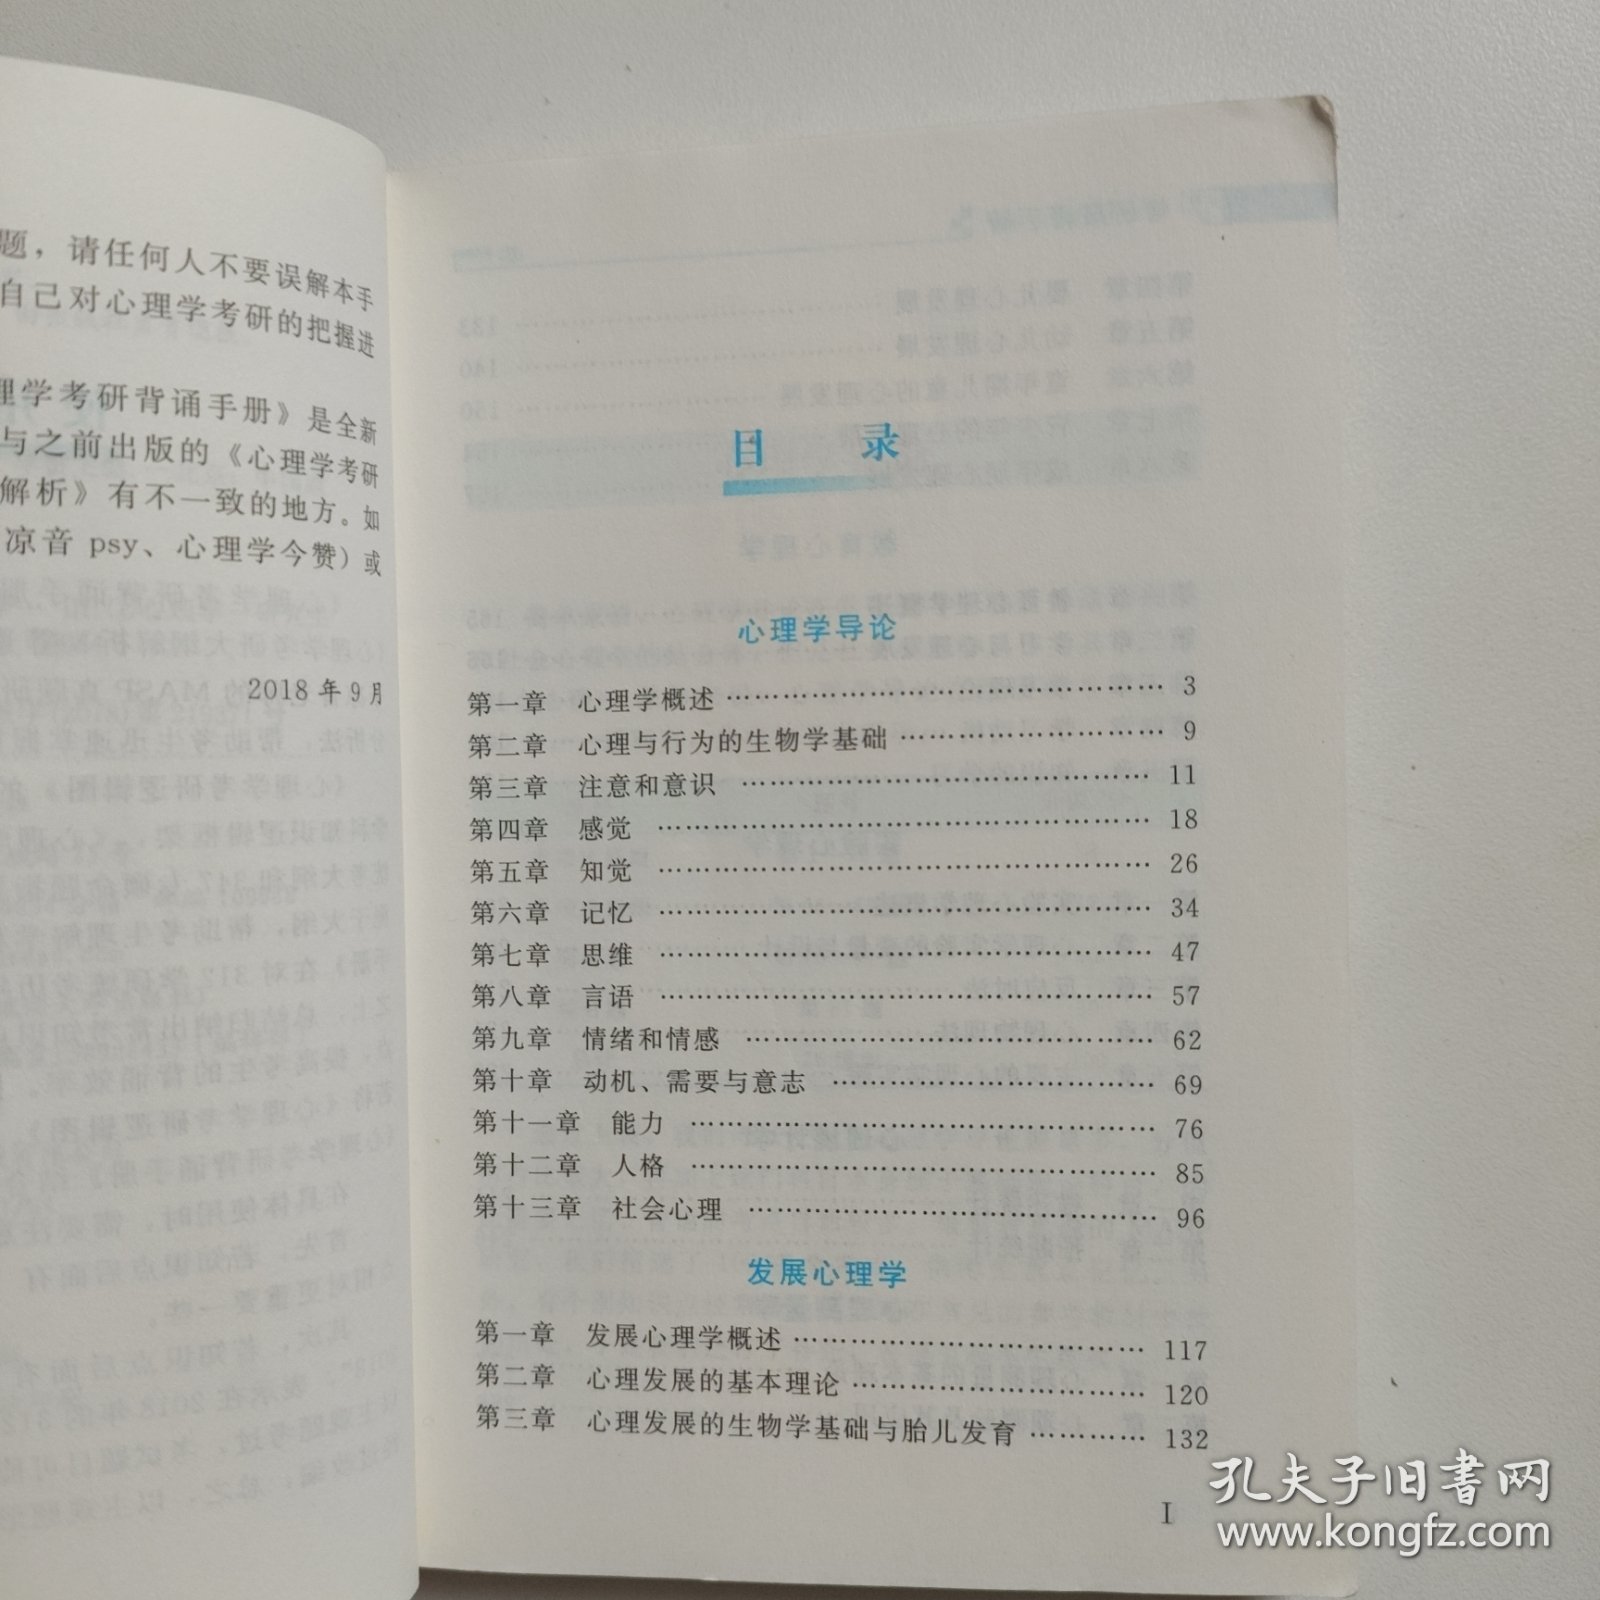 题，请任何人不要误解本手
自己对心理学考研的把握进
理学考研背诵手册》是全新
与之前出版的《心理学考研
解析》有不一致的地方。如
凉音 psy、心理学今赞）或
2018 年 9 月
目 录
心理学导论
第一章 心理学概述 …………………………………………… 3
第二章 心理与行为的生物学基础 ………………………… 9
第三章 注意和意识 ………………………………………… 11
第四章 感觉 ………………………………………………… 18
第五章 知觉 ………………………………………………… 26
第六章 记忆 ………………………………………………… 34
第七章 思维 ………………………………………………… 47
第八章 言语 ………………………………………………… 57
第九章 情绪和情感 ………………………………………… 62
第十章 动机、需要与意志 ………………………………… 69
第十一章 能力 ……………………………………………… 76
第十二章 人格 ……………………………………………… 85
第十三章 社会心理 ………………………………………… 96
发展心理学
第一章 发展心理学概述 ………………………………… 117
第二章 心理发展的基本理论 …………………………… 120
第三章 心理发展的生物学基础与胎儿发育 ………… 132
I
孔夫子旧书网
www.kongfz.com